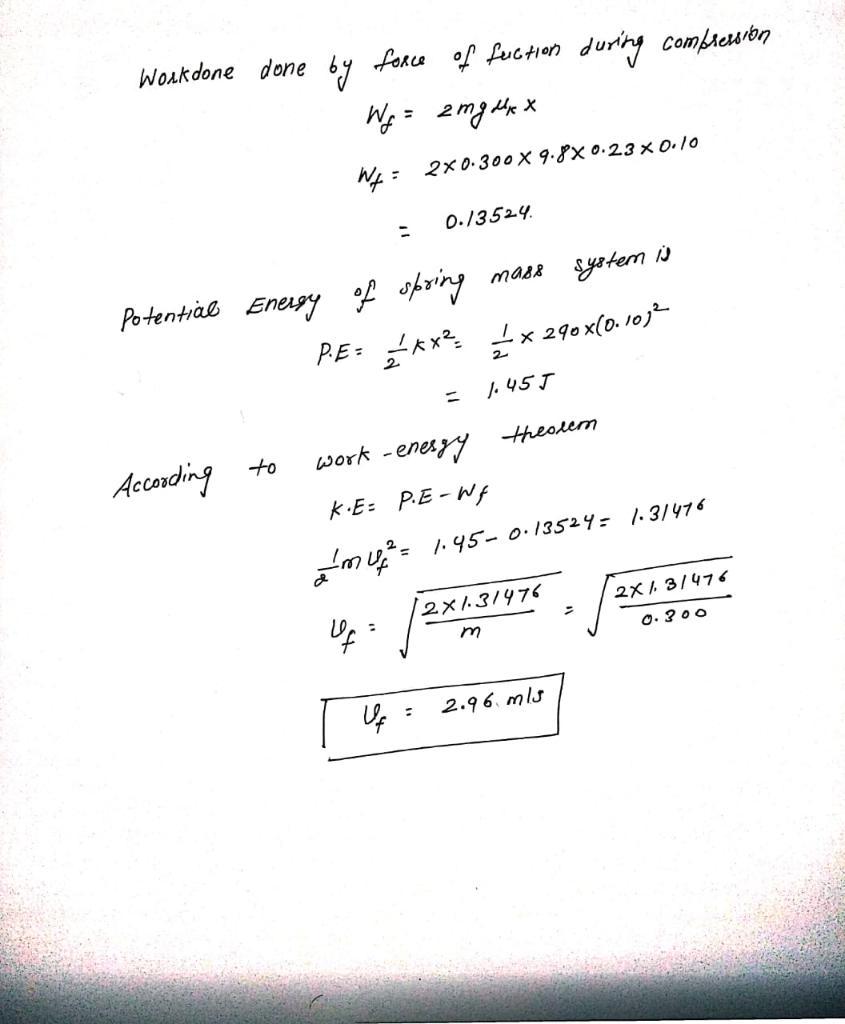 Workdone done by force of friction during compression
Wf = 2mgμk x
Wf = 2×0.300×9.8×0.23×0.10
= 0.13524.
Potential Energy of spring mass system is
P.E = 1/2 kx² = 1/2 × 290×(0.10)²
= 1.45 J
According to work-energy theorem
K.E = P.E - Wf
1/2 m vf² = 1.45 - 0.13524 = 1.31476
vf = √(2×1.31476/m) = √(2×1.31476/0.300)
vf = 2.96 m/s